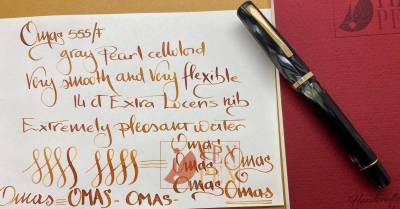 Omas 555/F
gray Pearl celluloid
Very smooth and Very flexible
14 ct Extra Lucens nib
Extremely pleasant writer
Omas
Omas Omas
Omas
Omas = OMAS - OMAS - Omas